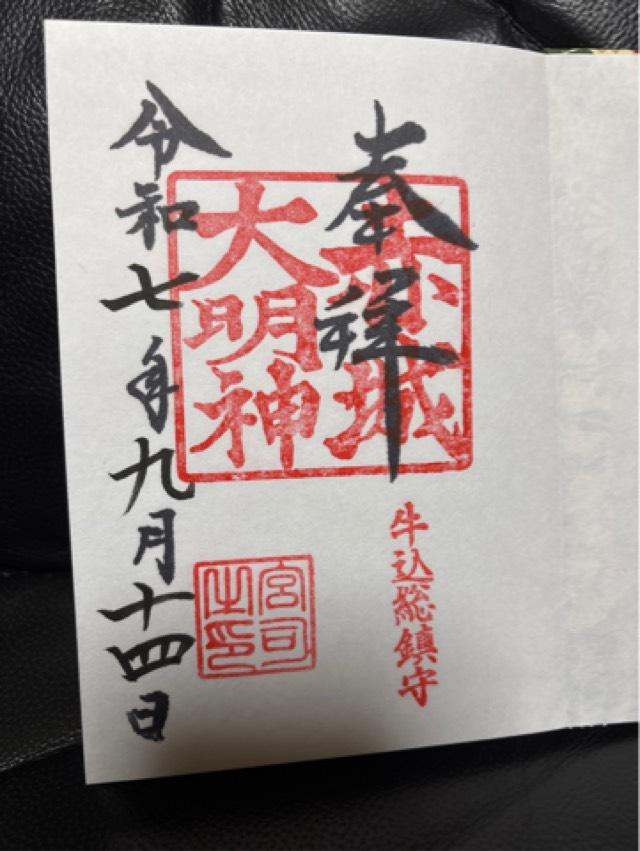 奉拝
赤城
大明神
牛込総鎮守
宮司
之印
令和七年九月十四日